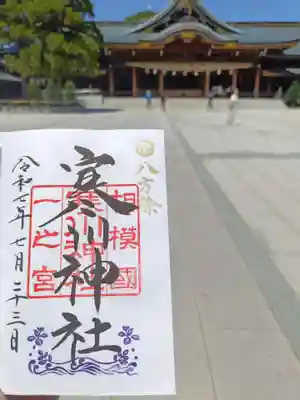 八方除
相模國
寒川神社
一之宮
令和七年七月二十三日